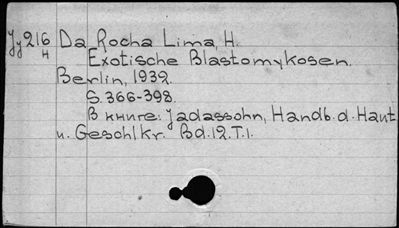 Jy216 Da Rocha Lima, H.
H Exotische Blastomykosen.
Berlin, 1932.
S. 366-398.
В книге: Jadassohn, Handb. d. Haut
u. Geschlkr. Bd.12.T.1.